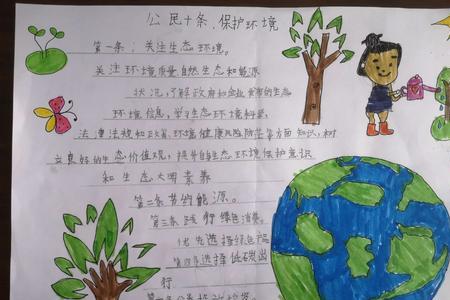 公民十条、保护环境
第一条：关注生态环境。
关注环境质量、自然生态和能源
状况，了解政府和企业发布的生态
环境信息，学习生态环境科学、
法律法规和政策、环境健康风险防范等方面知识，树
立良好的生态价值观，提升自身生态环境保护意识
和生态文明素养
第二条节约能源。
第三条践行绿色消费。
优先选择绿色产品
第四条选择低碳出
行